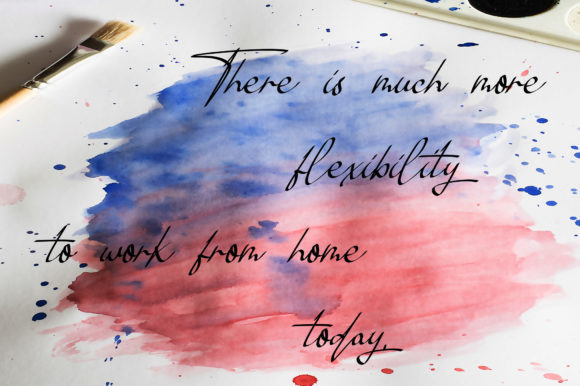 There is much more
flexibility
to work from home
today.